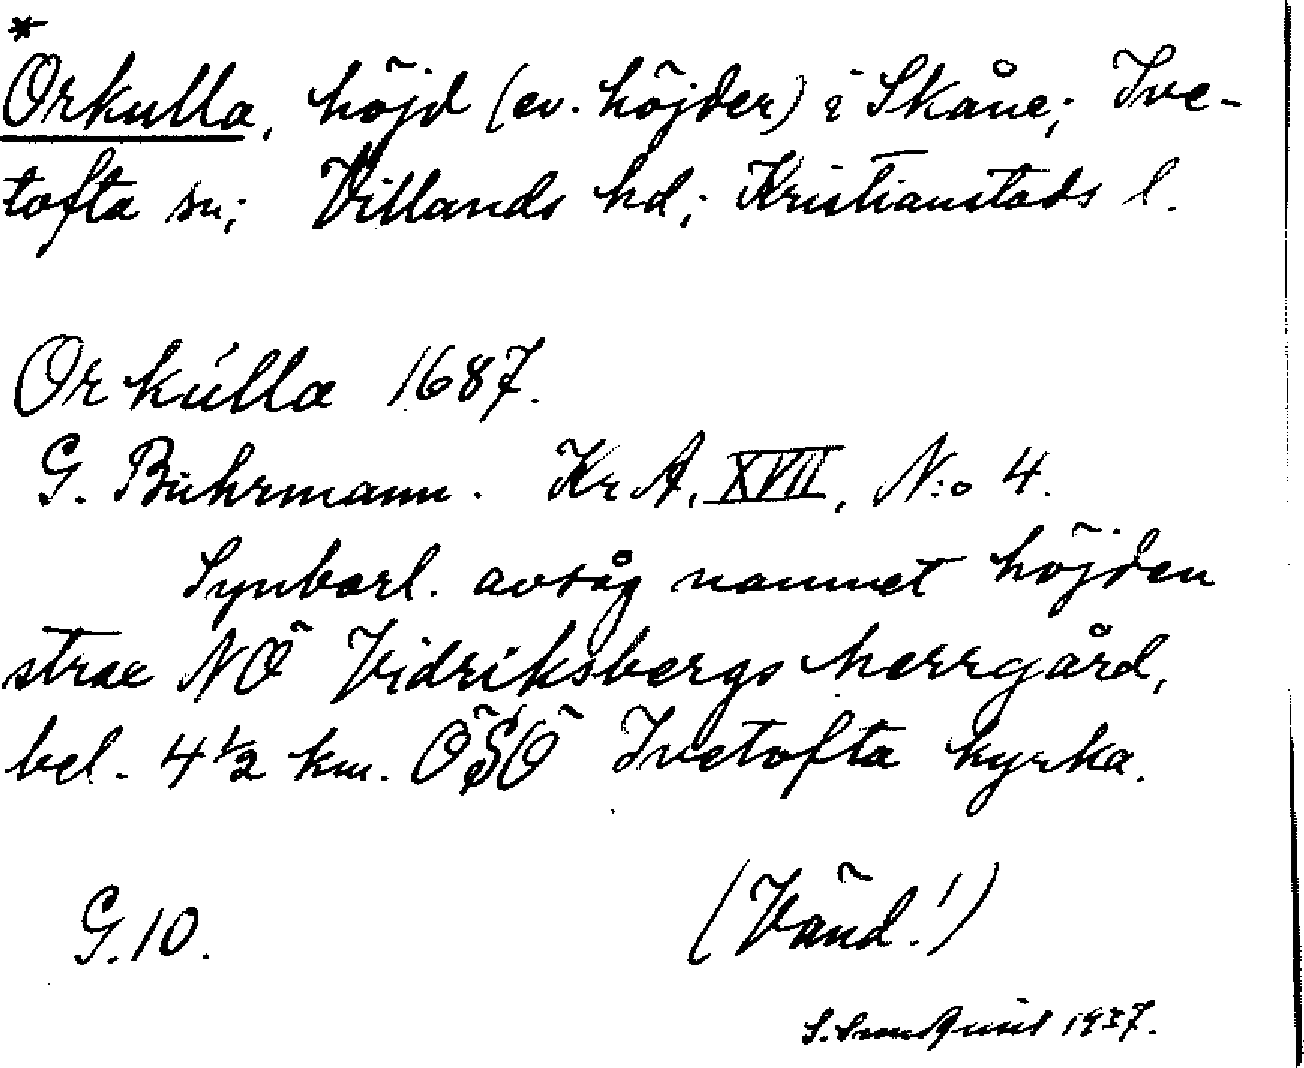 *
Orkulla, höjd (ev. höjder) i Skåne; Ive-
tofta sn; Villands hd; Kristianstads l.
Orkúlla 1687.
G. Buhrmann. Kr A, XVII, N:o 4.
Synbarl. avsåg namnet höjden
strax NO Vidriksbergs herrgård,
bel. 4 1/2 km. ÖSÖ Ivetofta kyrka.
G.10.
(Vänd!)
S. 1937.